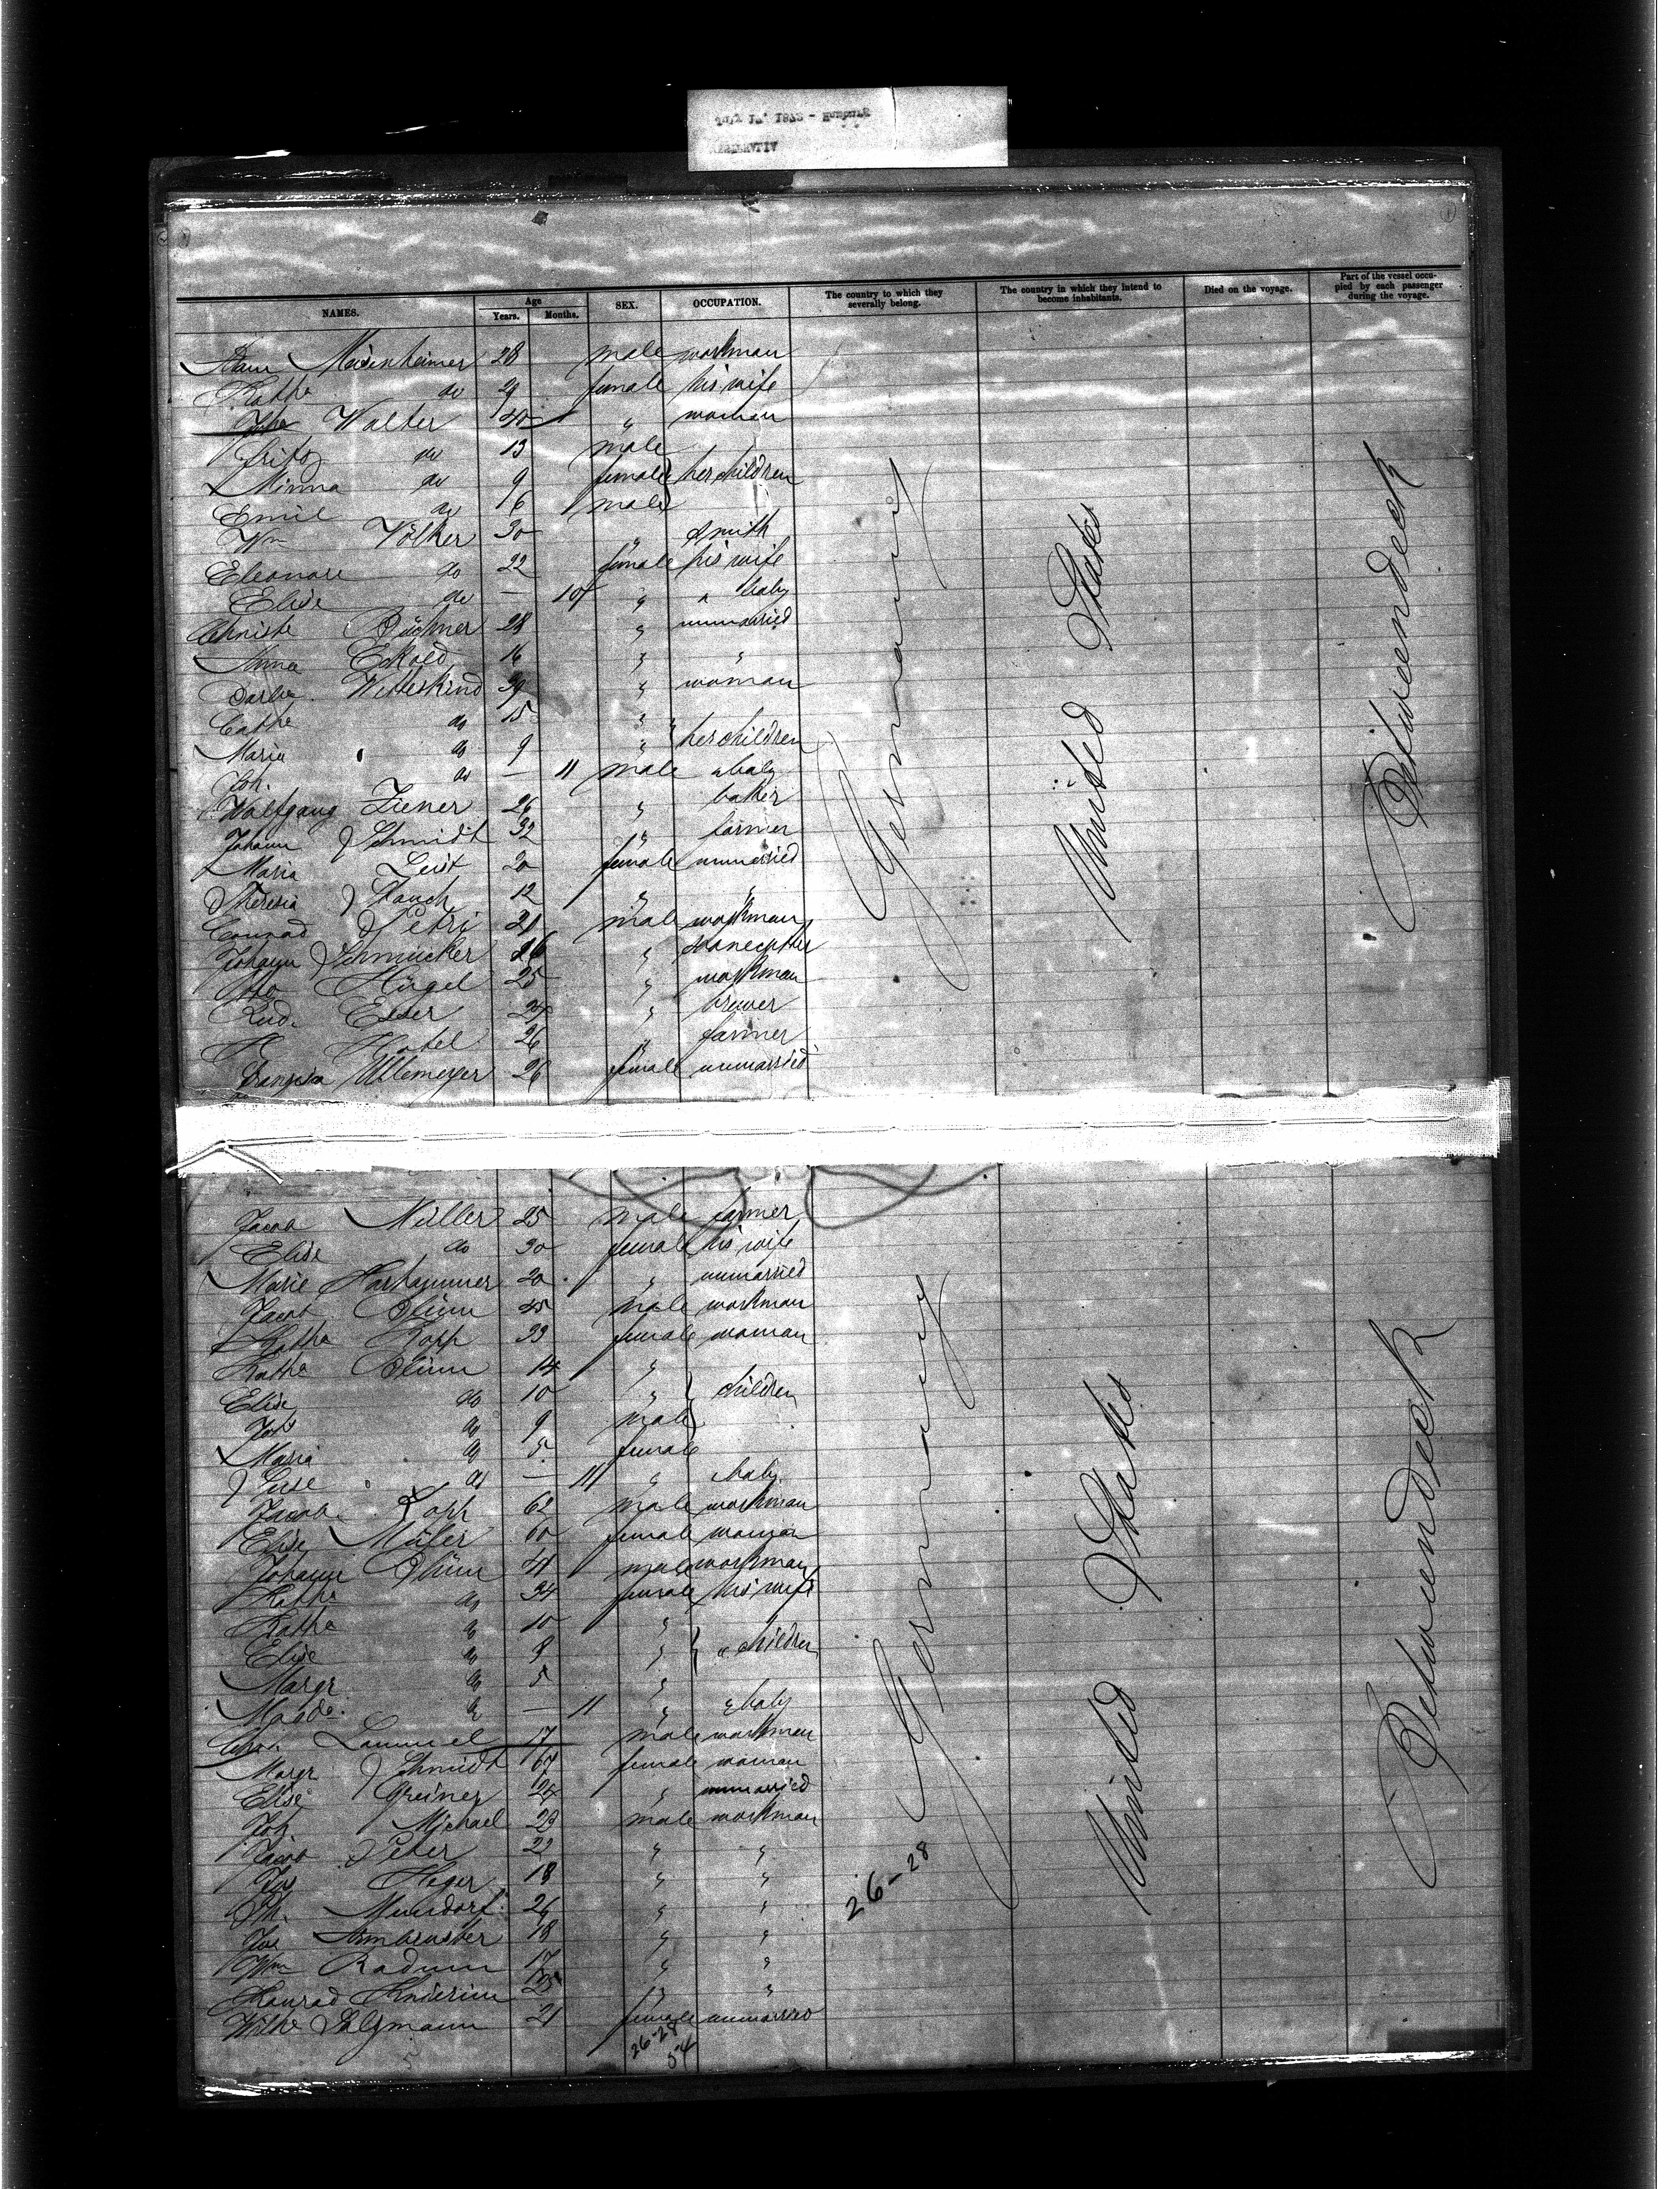 NAMES. Age Years. Months. SEX. OCCUPATION. The country to which they severally belong. The country in which they intend to become inhabitants. Died on the voyage. Part of the vessel occupied by each passenger during the voyage.
Meisenheimer 28 male workman
Kathe do 29 female his wife
Walter 40 " woman
Fritz do 13 male
Minna do 9 female her children
Emil do 6 male
Wm Völker 30 " smith
Eleonore do 22 female his wife
Elise do — 10 " " baby
Christe Büchner 28 " unmarried
Anna Eckold 16 " "
Witteskind 39 " woman
Cathe do 15 " "
Maria do 9 " her children
Joh. do — 11 male " baby
Wolfgang Ziener 26 " baker
Johann Schmidt 32 " farmer
Maria Leist 20 female unmarried
Theresia Hauch 12 " "
Conrad Petri 21 male workman
Johann Schmücker 26 "
Hügel 25 " workman
Rud. Esser 27 " brewer
26 " farmer
Uttemeyer 26 female unmarried
Germany
United States
Betweendeck
Jacob Müller 25 male farmer
Elise do 30 female his wife
Marie 20 " unmarried
Jacob Blum 45 male workman
Kathe Kopp 33 female woman
Kathe Blum 14 "
Elise do 10 " children
Joh do 9 male
Maria do 5 female
do — 11 " baby
Jacob Kopp 62 male workman
Elise Müller 60 female woman
Johann Blum 41 male workman
Kathe do 34 female his wife
Kathe do 10 "
Elise do 8 " " children
Margr do 5 "
Magde. do — 11 " " baby
Lammel 17 male workman
Margr Schmidt 67 female woman
Elise Greiner 24 " unmarried
Joh Michael 23 male workman
Jacob Peter 22 " "
Jos Heger 18 " "
Mundorf 26 " "
Jos Armbruster 18 " "
Wm Radum 17 " "
Konrad Knierim 25 " "
Wilhe Salzmann 21 female
Germany
United States
Betweendeck
26-28
26-28
54